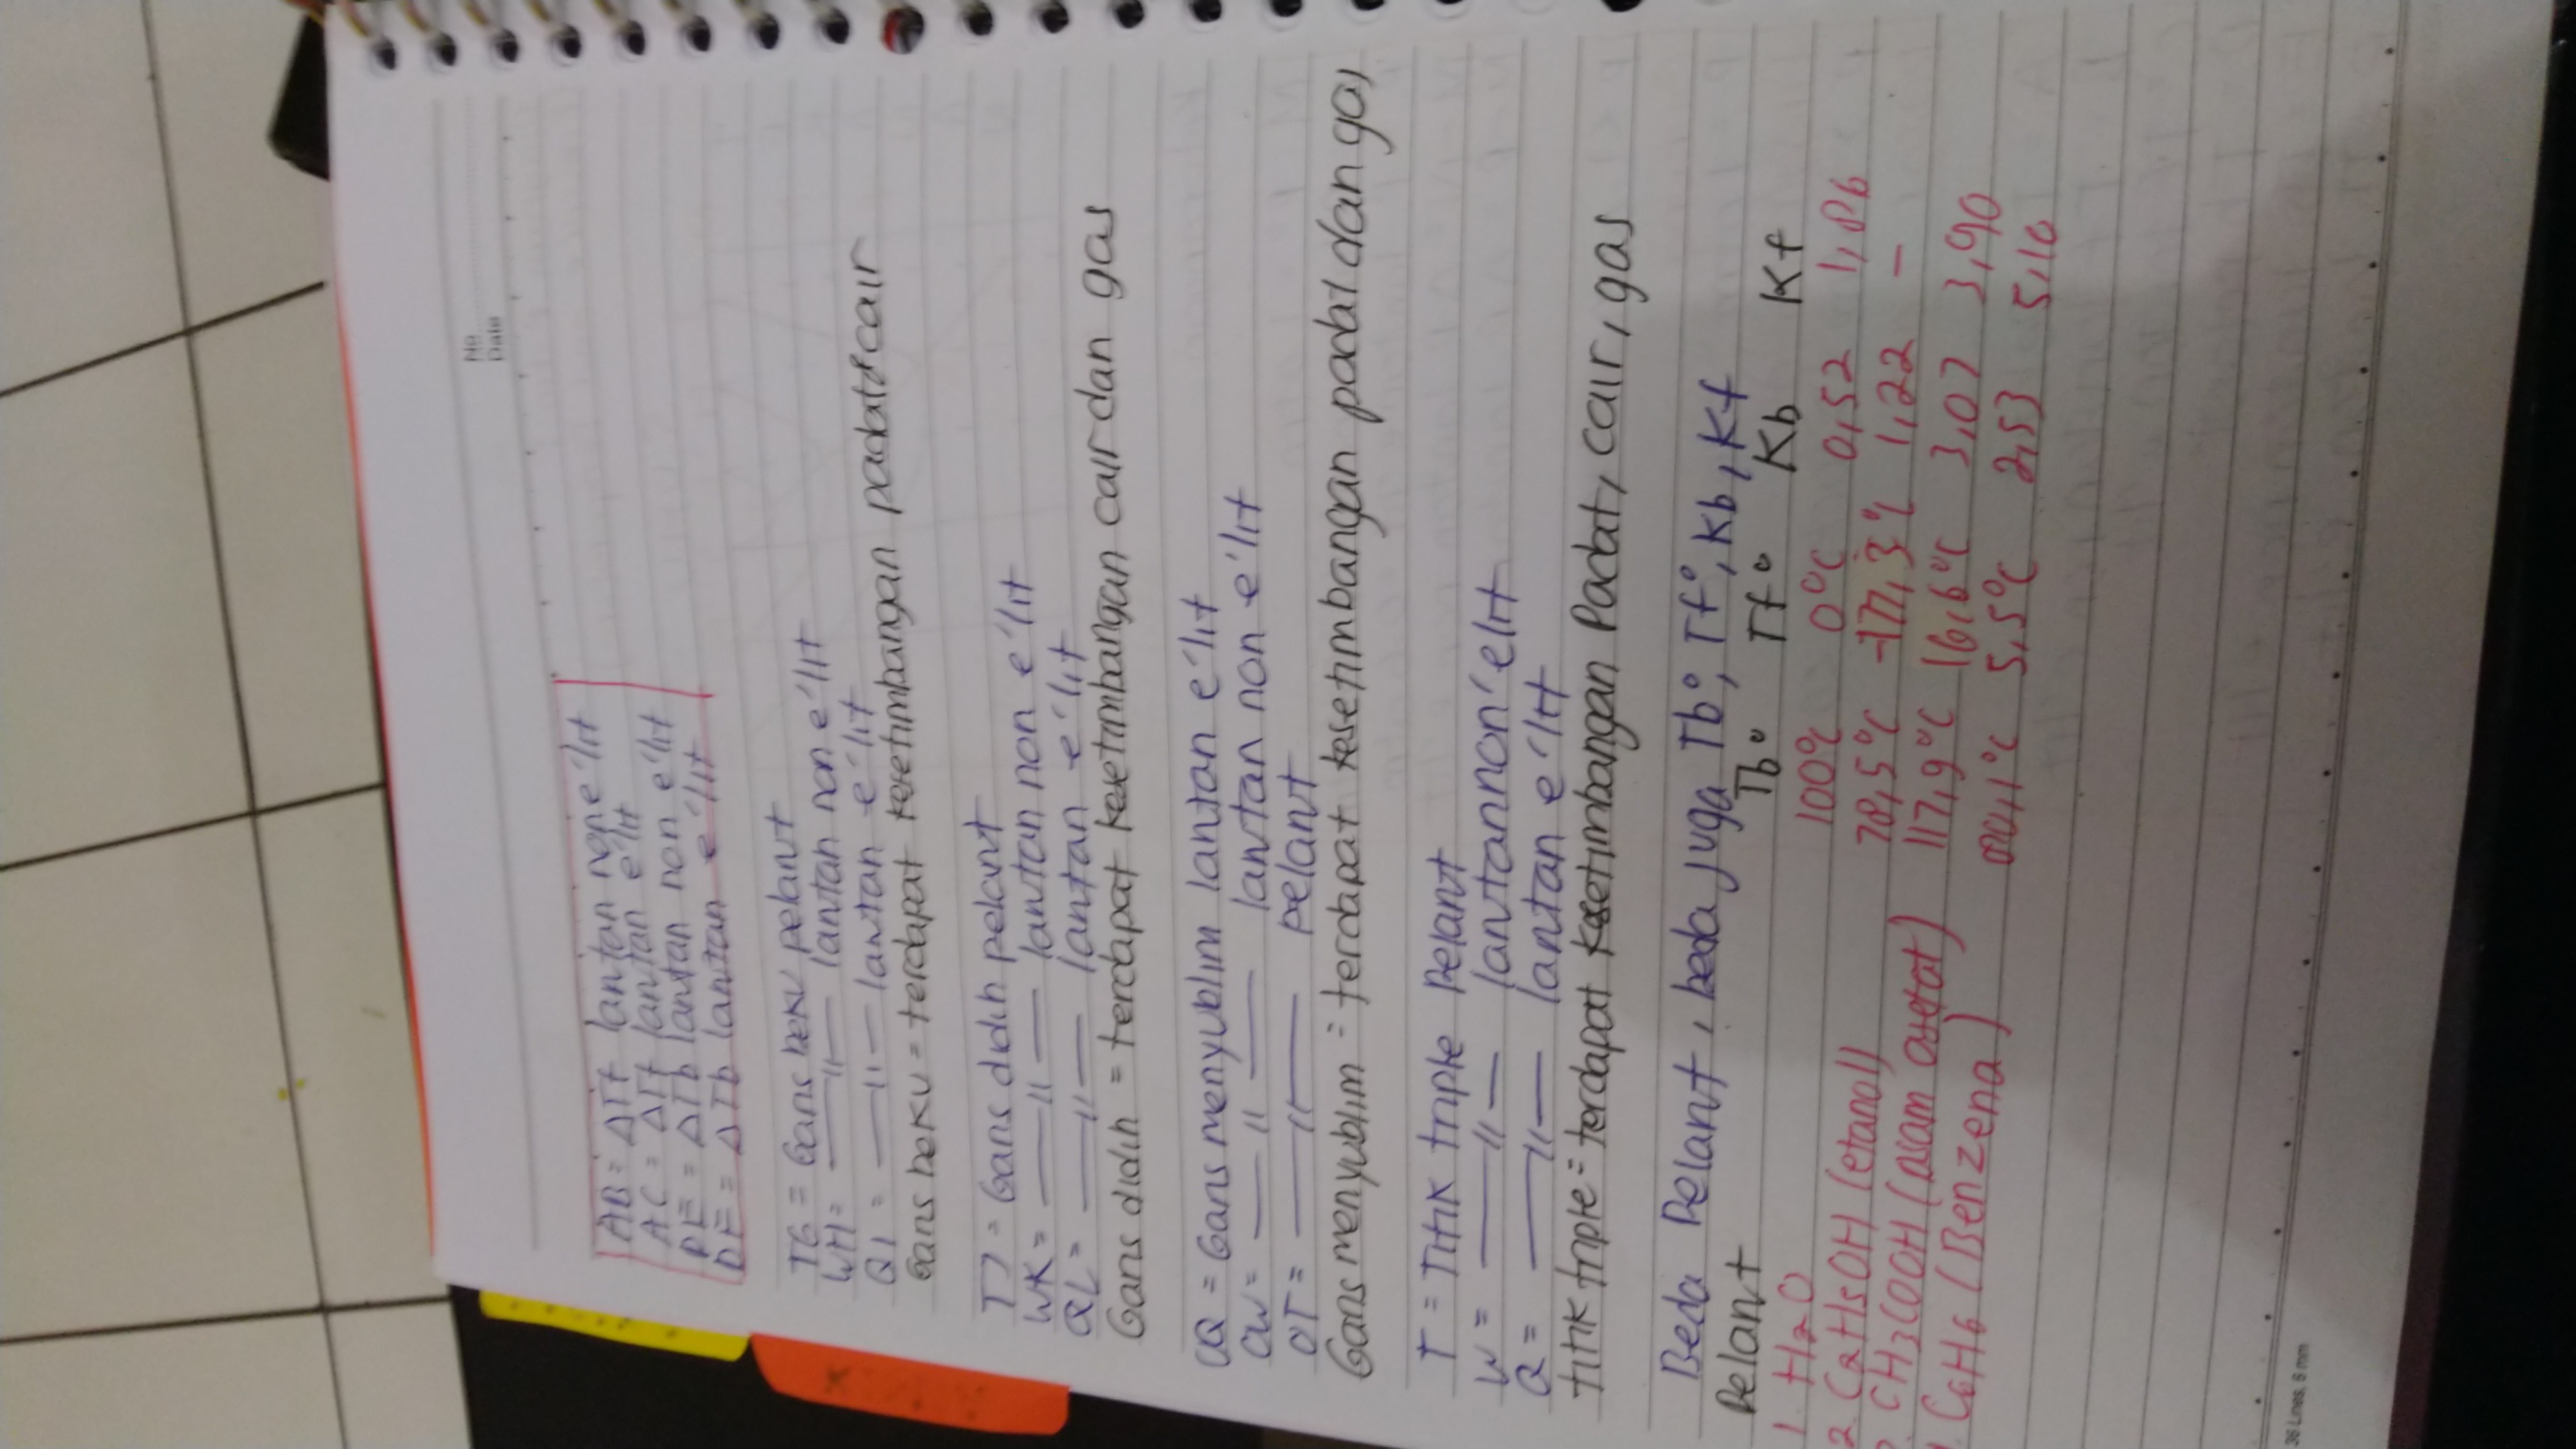 No
Date
AB = ΔTf larutan non e'lit
AC = ΔTf larutan e'lit
DE = ΔTb larutan non e'lit
DF = ΔTb larutan e'lit
TG = Garis beku pelarut
WH = —〃— larutan non e'lit
QI = —〃— larutan e'lit
Garis beku = terdapat kesetimbangan padat & cair
TJ = Garis didih pelarut
WK = —〃— larutan non e'lit
QL = —〃— larutan e'lit
Garis didih = terdapat kesetimbangan cair dan gas
OQ = Garis menyublim larutan e'lit
OW = —〃— larutan non e'lit
OT = —〃— pelarut
Garis menyublim = terdapat kesetimbangan padat dan gas
T = Titik triple Pelarut
W = —〃— larutan non 'elit
Q = —〃— larutan e'lit
titik triple = terdapat kesetimbangan Padat, cair, gas
Beda Pelarut, beda juga Tb°, Tf°, Kb, Kf
Pelarut Tb° Tf° Kb Kf
1. H2O 100°C 0°C 0,52 1,86
2. C2H5OH (etanol) 78,5°C 1,22 -
CH3COOH (Asam asetat) 117,9°C 16,6°C 3,07 3,90
C6H6 (Benzena) 80,1°C 5,5°C 2,53 5,10
36 Lines, 6 mm